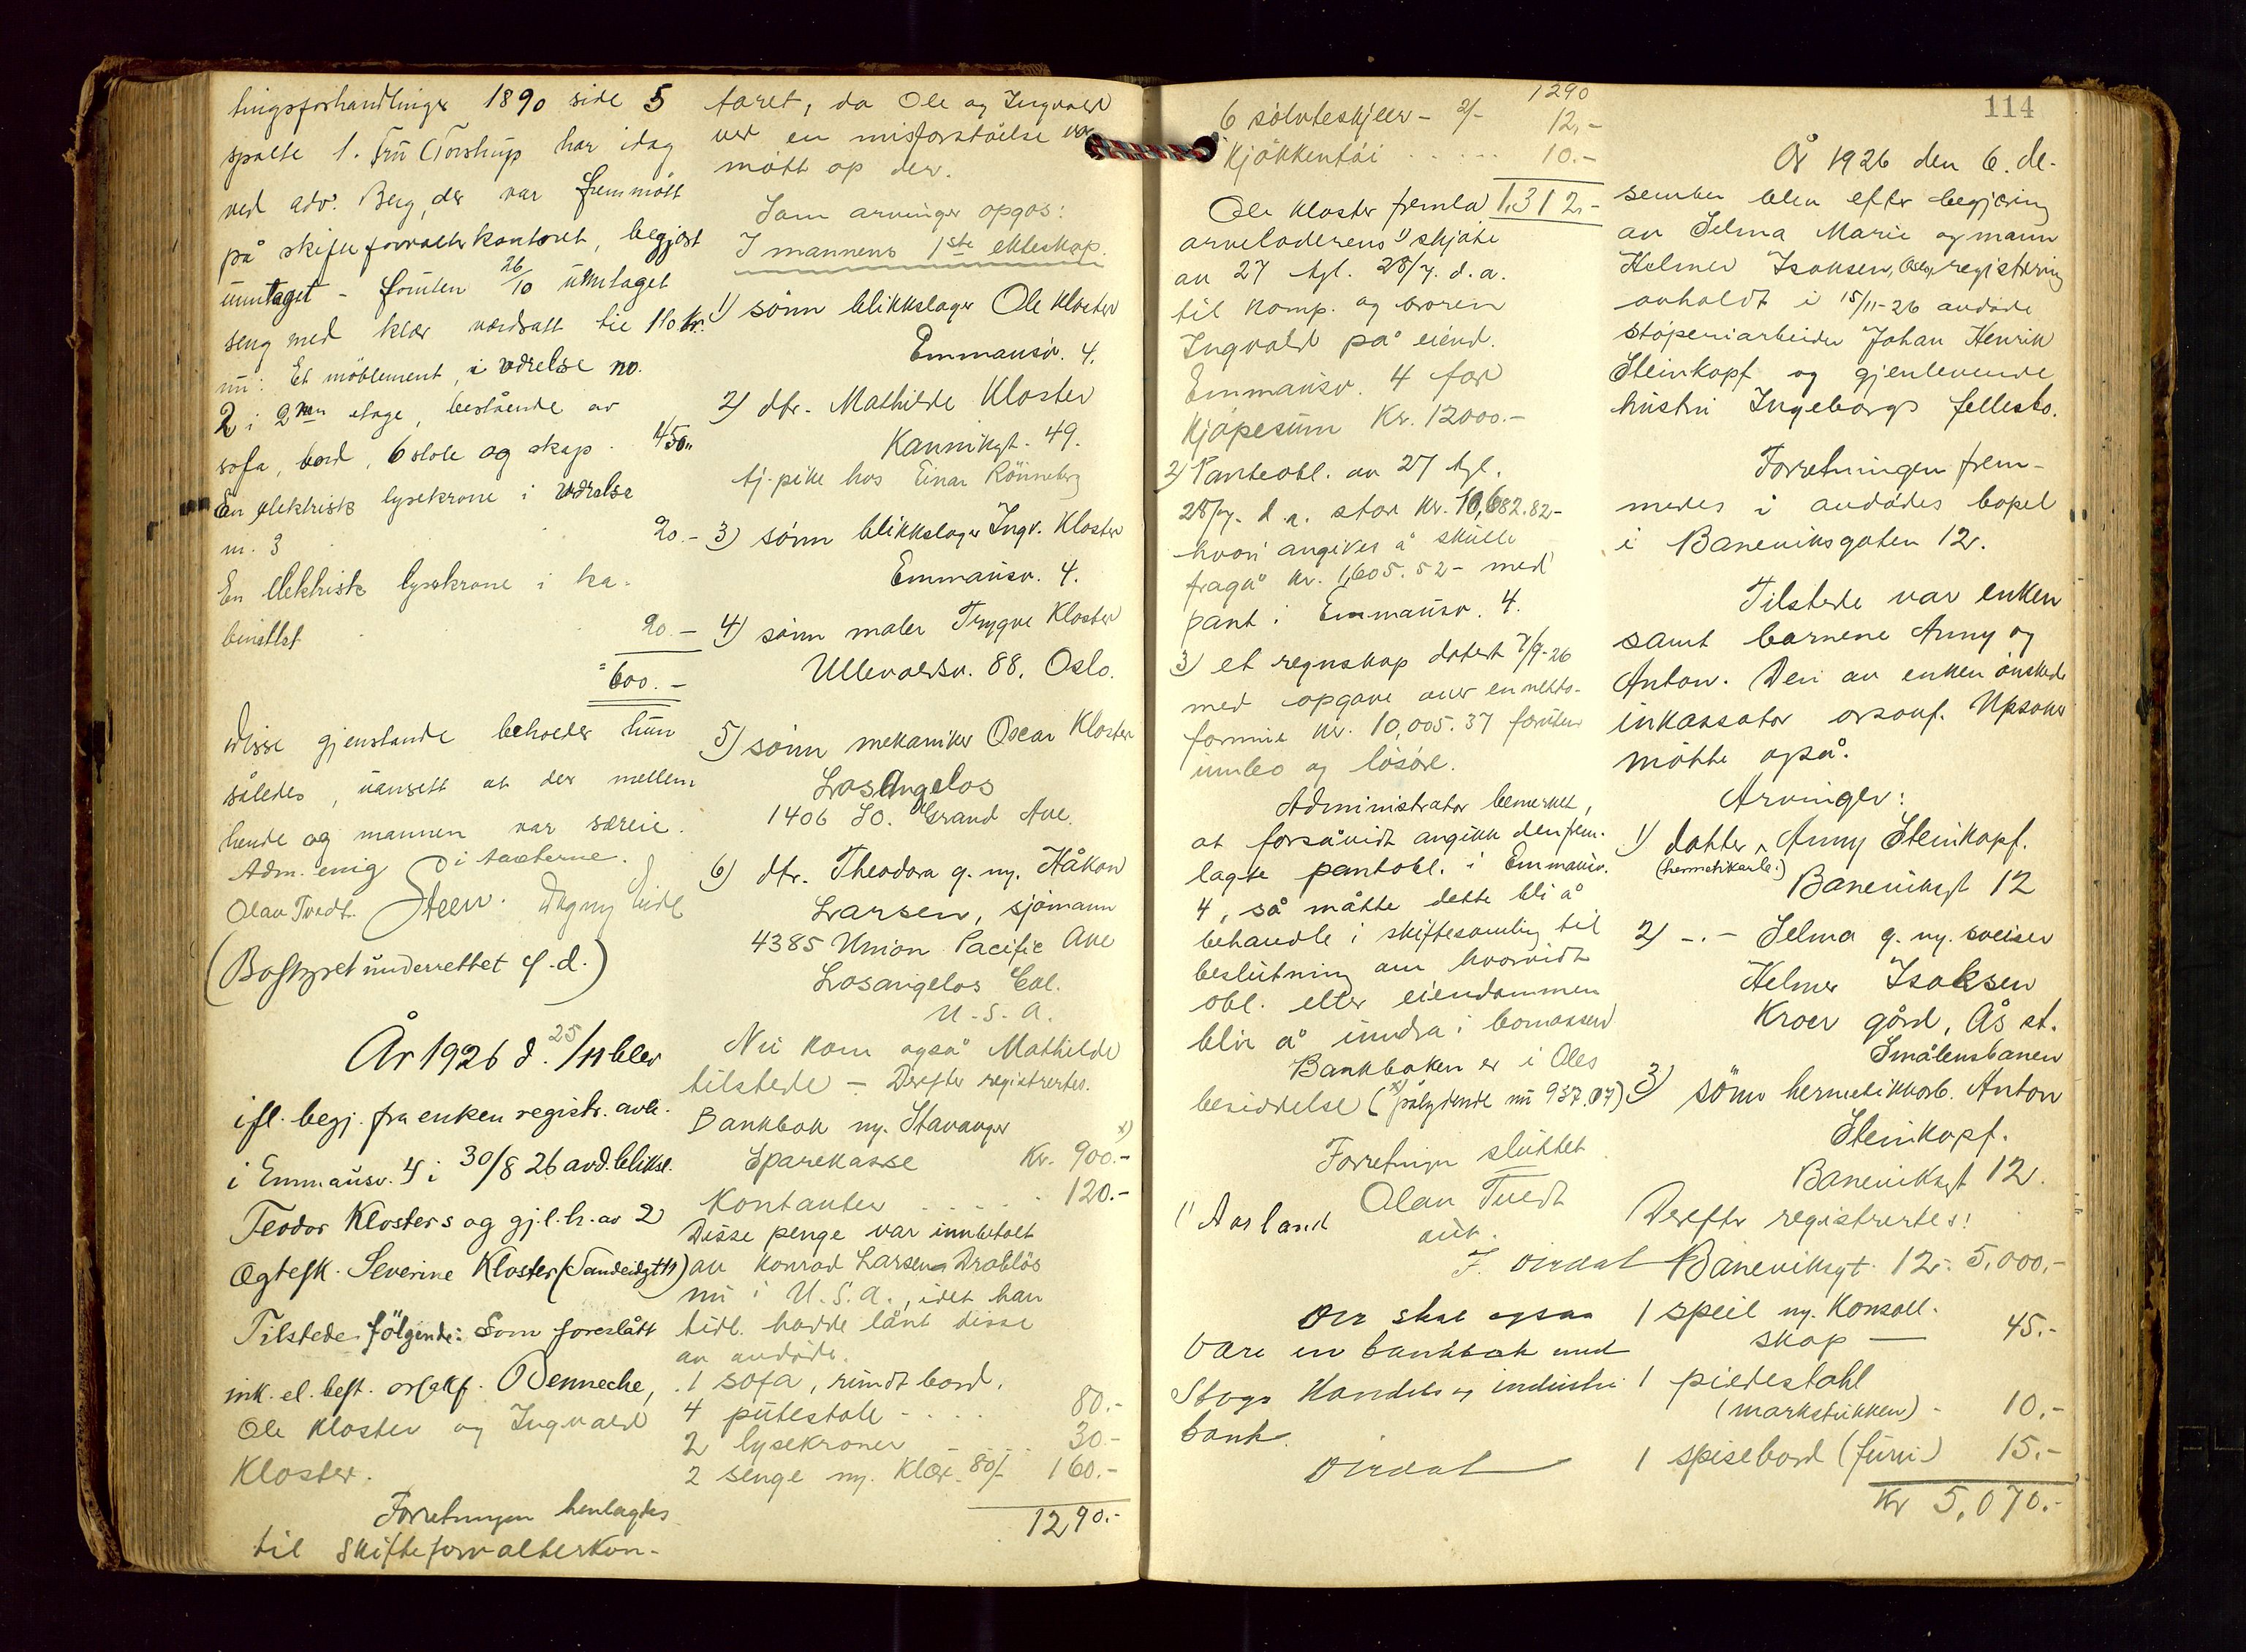 tingsforhandlinger 1890 side 5
spalte 1. Fru Torstrup har idag
ved adv. Berg, der var fremmøtt
på skifteforvalterkontoret, begjært
unntaget - foruten 26/10 unntaget
seng med klær verdsatt til 110 kr.
nu: Et møblement, i værelse no.
2 i 2nn etage, bestående av
sofa, bord, 6 stole og skap. 450,,
En elektrisk lysekrone i værelse
nr. 3 20.-
En elektrisk lysekrone i ka-
binettet 20.-
= 600.-
Disse gjenstande beholder hun
således, uansett at der mellem
hende og mannen var særeie.
Adm. enig i taxterne.
Olav Tvedt. Steen. Dagny Eide
(Bostyret underrettet s.d.)
År 1926 d. 25/11 blev
ifl. begj. fra enken registr. avh.
i Emmausv. 4 i 30/8 26 avd. bliksl.
Teodor Klosters og gj.l.h. av 2
Ægtesk. Severine Kloster (Sandeidgt 11)
Tilstede følgende: Som foreslått
ink. el. best. orsakf. Denneche,
Ole Kloster og Ingvald
Kloster.
Forretningen henlagdes
til skifteforvalterkon-
toret, da Ole og Ingvald
ved en misforståelse var
møtt op der.
Som arvinger opgos:
I mannens 1ste ekteskap.
1) sønn blikkslager Ole Kloster
Emmausv. 4.
2) dtr. Mathilde Kloster
Kannikgt. 49.
tj. pike hos Einar Rönneberg
3) sønn blikkslager Ingv. Kloster
Emmausv. 4.
4) sønn maler Trygve Kloster
Ullevoldsv. 88, Oslo.
5) sønn mekaniker Oscar Kloster
Los Angelos
1406 So. Grand Ave.
6) dtr. Theodora g. m. Håkon
Larsen, sjømann
4385 Union Pacific Ave
Losangelos Cal.
U.S.A.
Nu kom også Mathilde
tilstede - Derefter registrertes.
Bankbok m. Stavanger x)
Sparekasse Kr. 900.-
Kontanter . . . . . 120.-
Disse penge var innbetalt
av Konrad Larsen Drabløs
nu i U.S.A., idet han
tidl. hadde lånt disse
av avdøde.
1 sofa, rundt bord,
4 putestole - . . . . 80.-
2 lysekroner - . . . 30.-
2 senge m. Klær 80/- 160.-
1290.-
1290
6 sølvteskjeer - 2/- 12,-
Kjøkkentøi . . . . . 10.-
Ole Kloster fremla 1,312,-
arveladerens 1) skjøte
av 27 tgl. 28/7. d.a.
til Komp. og broren
Ingvald på eiend.
Emmausv. 4 for
Kjøpesum Kr. 12000.-
2) Panteobl. av 27 tgl.
28/7. d.a. stor Kr. 10,682.82-
hvori angives å skulle
fragå kr. 1,605.52- med
pant i Emmausv. 4.
3) et regnskap datert 7/9-26
med opgave over en netto-
formue kr. 10,005.37 foruten
innbo og løsøre.
Administrator bemerket,
at forsåvidt angikk den frem-
lagte pantobl. i Emmausv.
4, så måtte dette bli å
behandle i skiftesamling til
beslutning om hvorvidt
obl. eller eiendommen
blir å inndra i bomassen
Bankboken er i Oles
besiddelse (x) pålydende nu 937.07)
Forretningen sluttet
Olav Tvedt
aut.
1) Aarland
J. Dirdal
Der skal ogsaa
være en bankbok med
Stvgr Handels og industri
bank.
Dirdal
114
År 1926 den 6. de-
sember blev efter begjæring
av Selma Marie og mann
Helmer Isaksen, Oslo, registrering
avholdt i 15/11-26 avdøde
støperiarbeider Johan Henrik
Steinkopf og gjenlevende
hustru Ingeborgs fellesbo.
Forretningen frem-
medes i avdødes bopel
i Baneviksgaten 12.
Tilstede var enken
samt barnene Anny og
Anton. Den av enken ønskede
inkassator orsakf. Upsaker
møtte også.
Arvinger:
1) datter, Anny Steinkopf.
(hermetikarb.) Baneviksgt 12
2) -.- Selma g. m. sveiser
Helmer Isaksen
Kroer gård, Ås st.
Smålensbanen
3) sønn hermetikkarb. Anton
Steinkopf.
Baneviksgt 12.
Derefter registrertes:
Baneviksgt. 12: 5,000,-
1 speil m. Konsoll-
skap - 45.-
1 piedestahl
(markstukken) - 10,-
1 spisebord (furu) 15.-
Kr 5,070.-